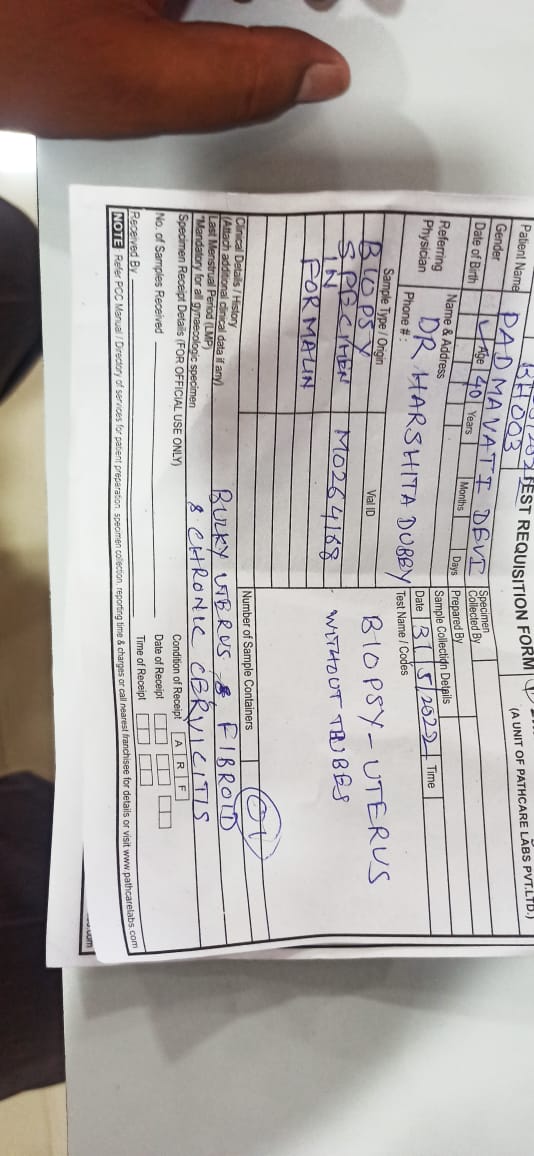 TEST REQUISITION FORM
(A UNIT OF PATHCARE LABS PVT.LTD.)
BH003
Patient Name PADMAVATI DEVI
Gender
Specimen Collected By
Date of Birth Age 40 Years Months Days
Prepared By
Referring Physician
Name & Address
DR HARSHITA DUBEY
Phone # :
Sample Collection Details
Date 31/5/2022 Time
Sample Type / Origin Vial ID Test Name / Codes
BIOPSY
SPECIMEN
IN
FORMALIN
M0264168
BIOPSY - UTERUS
WITHOUT TUBES
Number of Sample Containers 01
Clinical Details / History
(Attach additional clinical data if any)
Last Menstrual Period (LMP)
*Mandatory for all gynaecologic specimen
BULKY UTERUS & FIBROID
& CHRONIC CERVICITIS
Specimen Receipt Details (FOR OFFICIAL USE ONLY)
Condition of Receipt A R F
No. of Samples Received
Date of Receipt
Received By
Time of Receipt
NOTE Refer PCC Manual / Directory of services for patient preparation, specimen collection, reporting time & charges or call nearest franchisee for details or visit www.pathcarelabs.com